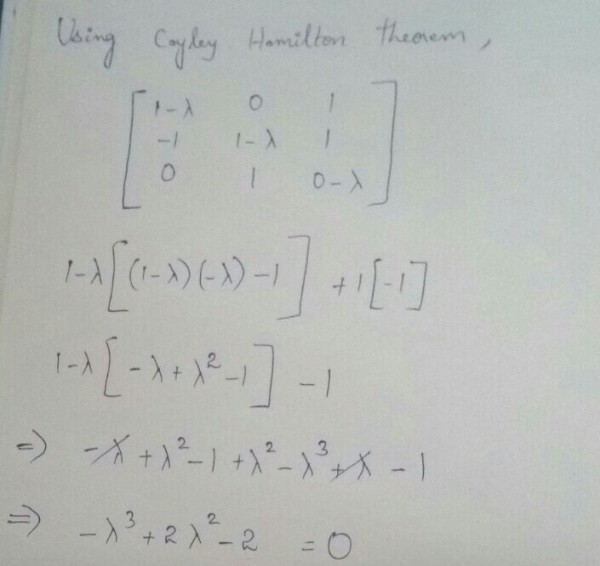 Using Cayley Hamilton theorem,
[ 1-λ 0 1
-1 1-λ 1
0 1 0-λ ]
1-λ[(1-λ)(-λ)-1] +1[-1]
1-λ[-λ+λ²-1] -1
=> -λ+λ²-1+λ²-λ³+λ-1
=> -λ³+2λ²-2 =0